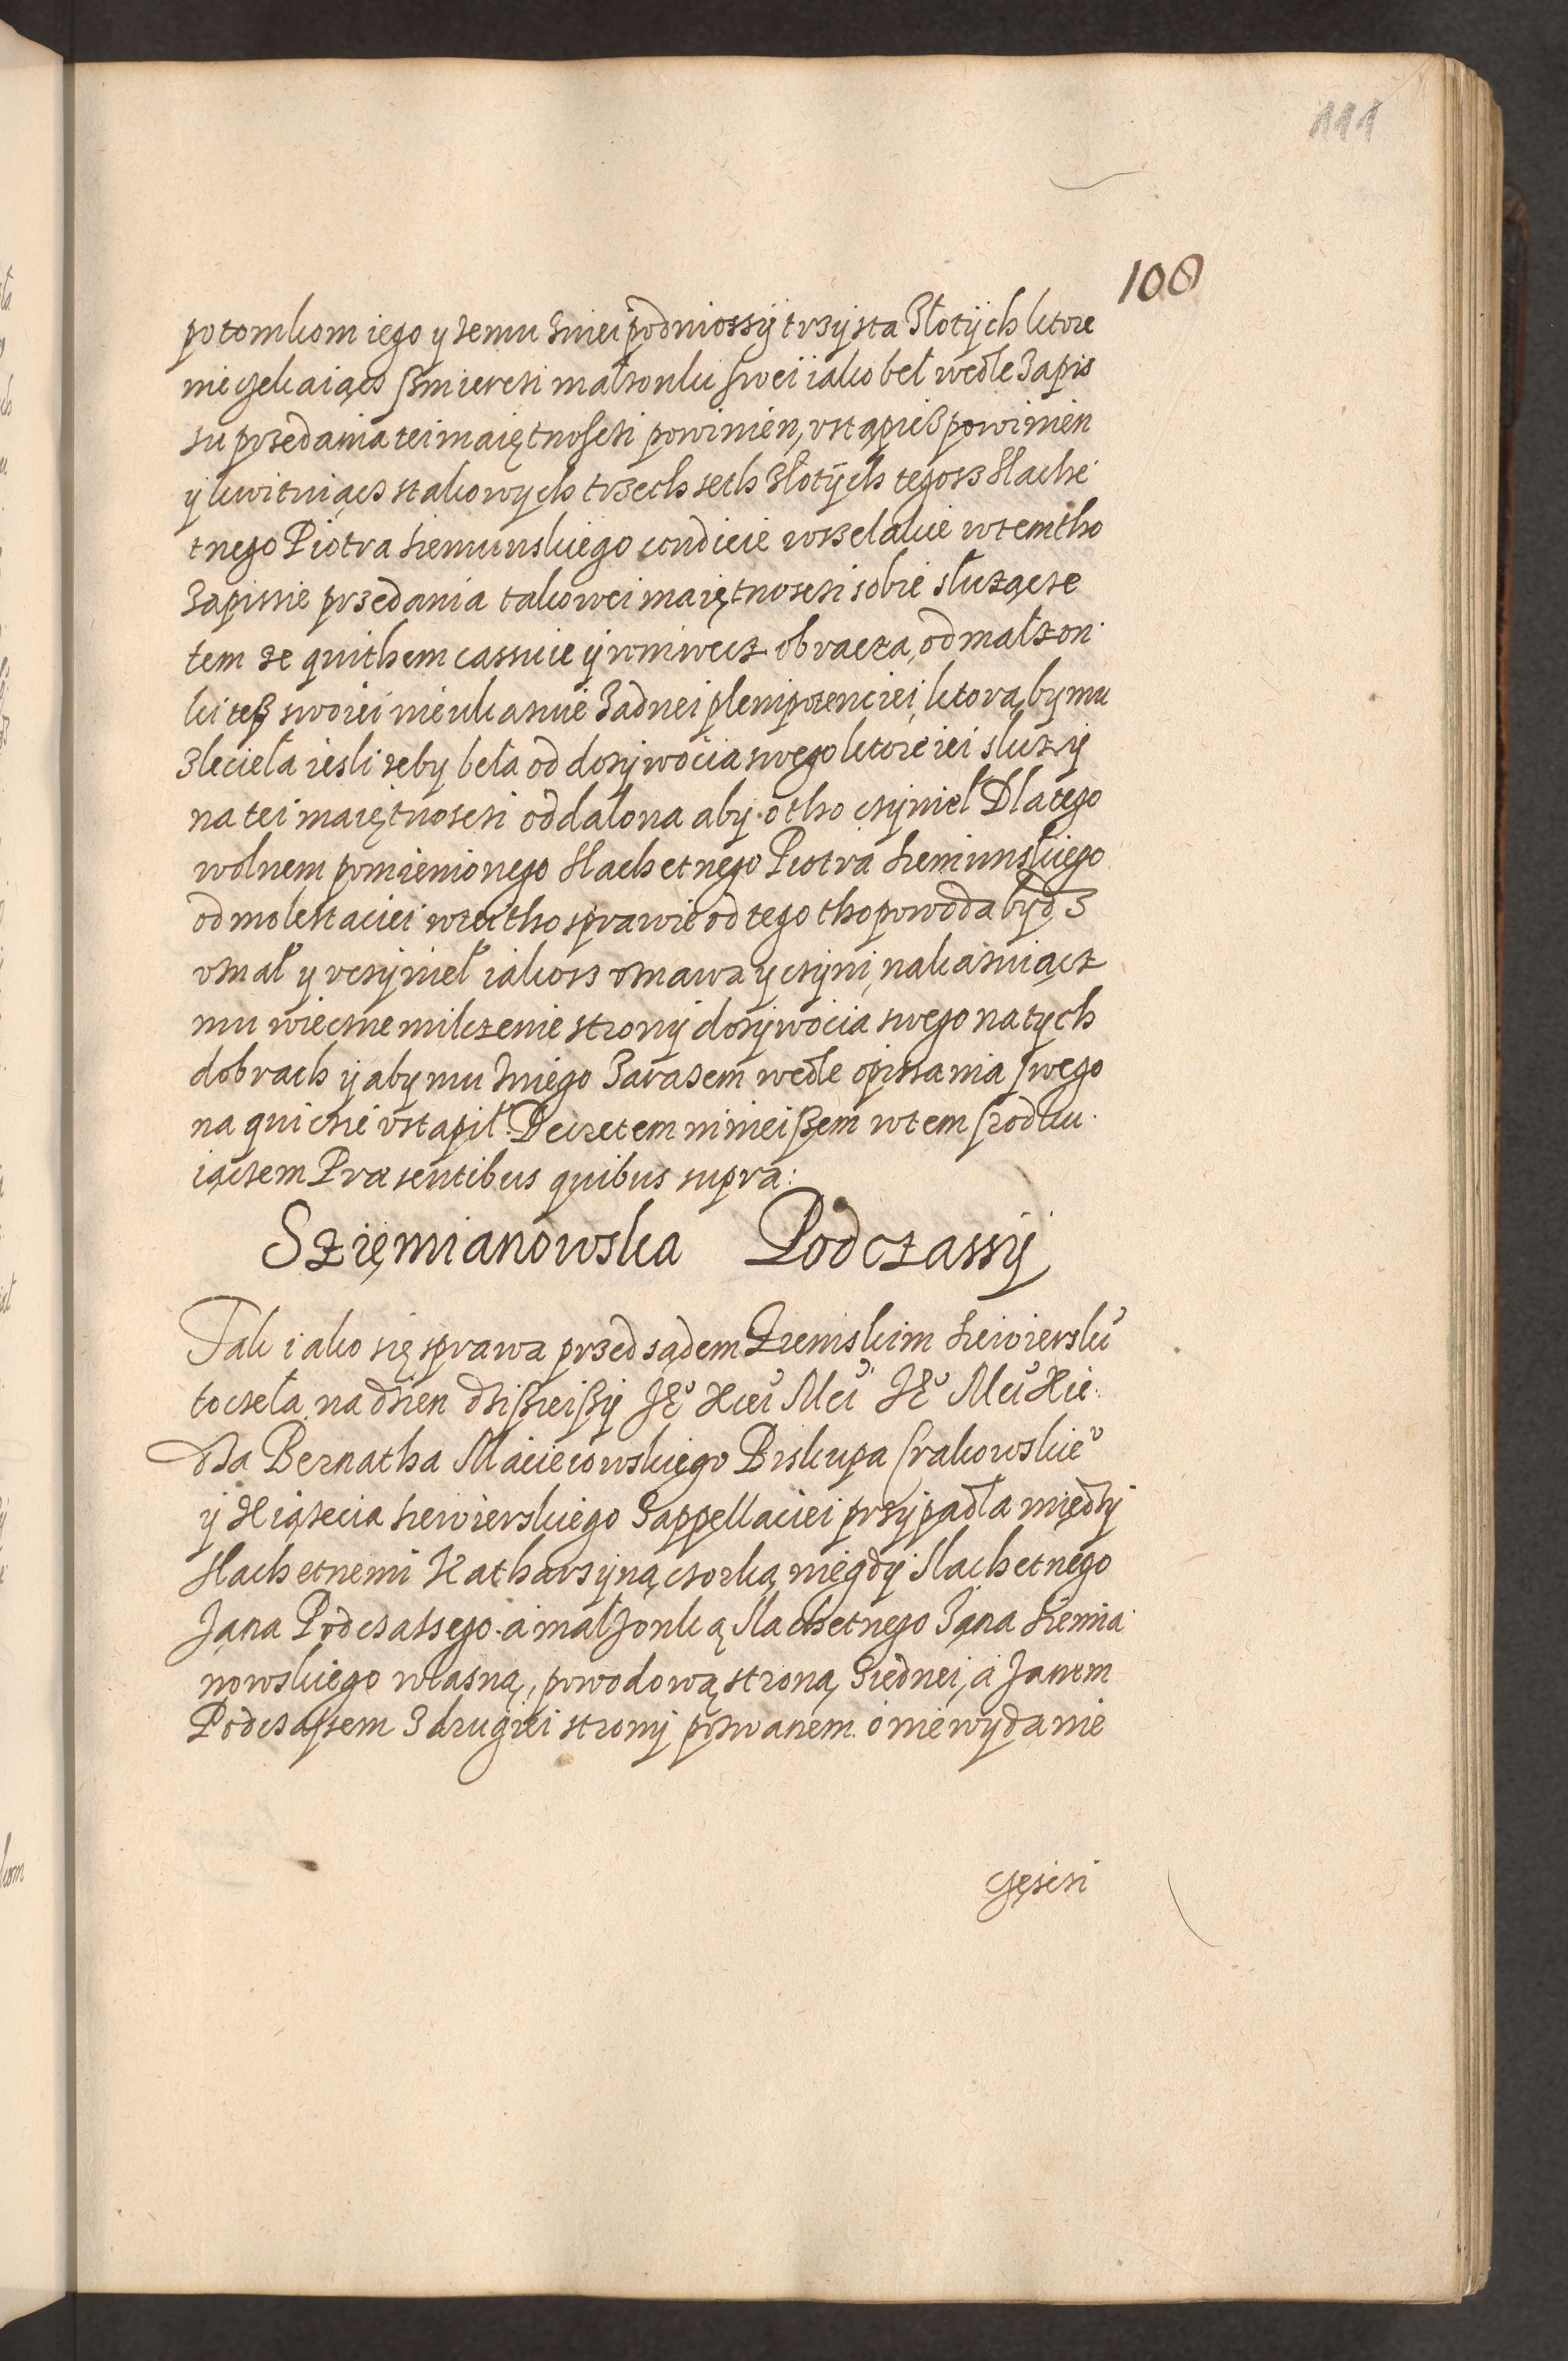 111
108
potomkom iego y zemu zniei podniossÿ trzÿsta Złotÿch ktore
nie czekaiącz smierczi małzonki swei iako beł wedle Zapis
su przedania tei maiętnosczi powinien, vstąpicz powinien
ÿ kwituiącz stakowych trzech seth złotÿch tegosz slache
tnego Piotra Siemunskiego condicie wszelakie wtemtho
Zapissie przedania takowei maiętnosczi sobie służącze
tem ze quithem cassuie ÿ wniwecz obracza, od małzon
ki też swoiei nie ukazuie żadnei plenipotenciei, ktorą by mu
zleciela iesli żeby beła od dozÿwocia swego ktore iei służÿ
na tei maiętnosczi oddalona aby o tho czÿniel Dla tego
wolnem pomienionego slachetnego Piotra Siemunskiego
od molestaciei wteitho sprawie od tego tho powoda bÿdz
vznał y vczÿnieł iakosz vznawa y czÿni, nakazuiącz
mu wieczne milczenie stronÿ dozÿwocia swego na tych
dobrach ÿ aby mu zniego zarazem wedle opissania swego
na qui czie vstąpił. Decretem ninieiszem wtem srodku
iączem Præsentibus quibus supra:
Szięmianowska Podczassÿ
Tak iako się sprawa przed sądem Ziemskim Siewierskiᵒ
toczeła, na dzien dzisieiszÿ Jᵒ Xcei Mci Jᵒ Mci Xię
dza Bernatha Macieiowskiego Biskupa Crakowskieᵒ
ÿ Xiążecia Siewierskiego Zappellaciei przÿpadła międzÿ
slachetnemi Katharzÿną czorką niegdÿ slachetnego
Jana Podczassego a małżonką slachetnego Jana Siemia
nowskiego własną, powodową stroną, Ziednei, a Janem
Podczassem Z drugiei stronÿ pozwanem. o nie wÿdanie
częsczi